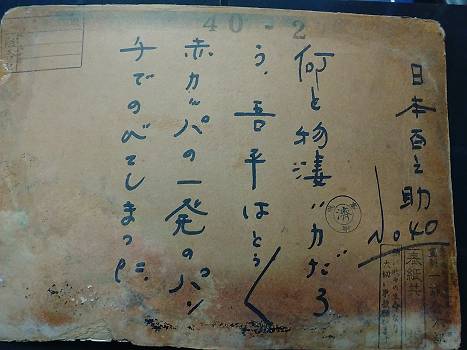 40-2
日本百之助
No 40
何と物凄い力だろ
う、吾平はとう〱
赤カッパの一発のパン
チでのびてしまった。
済
表紙共